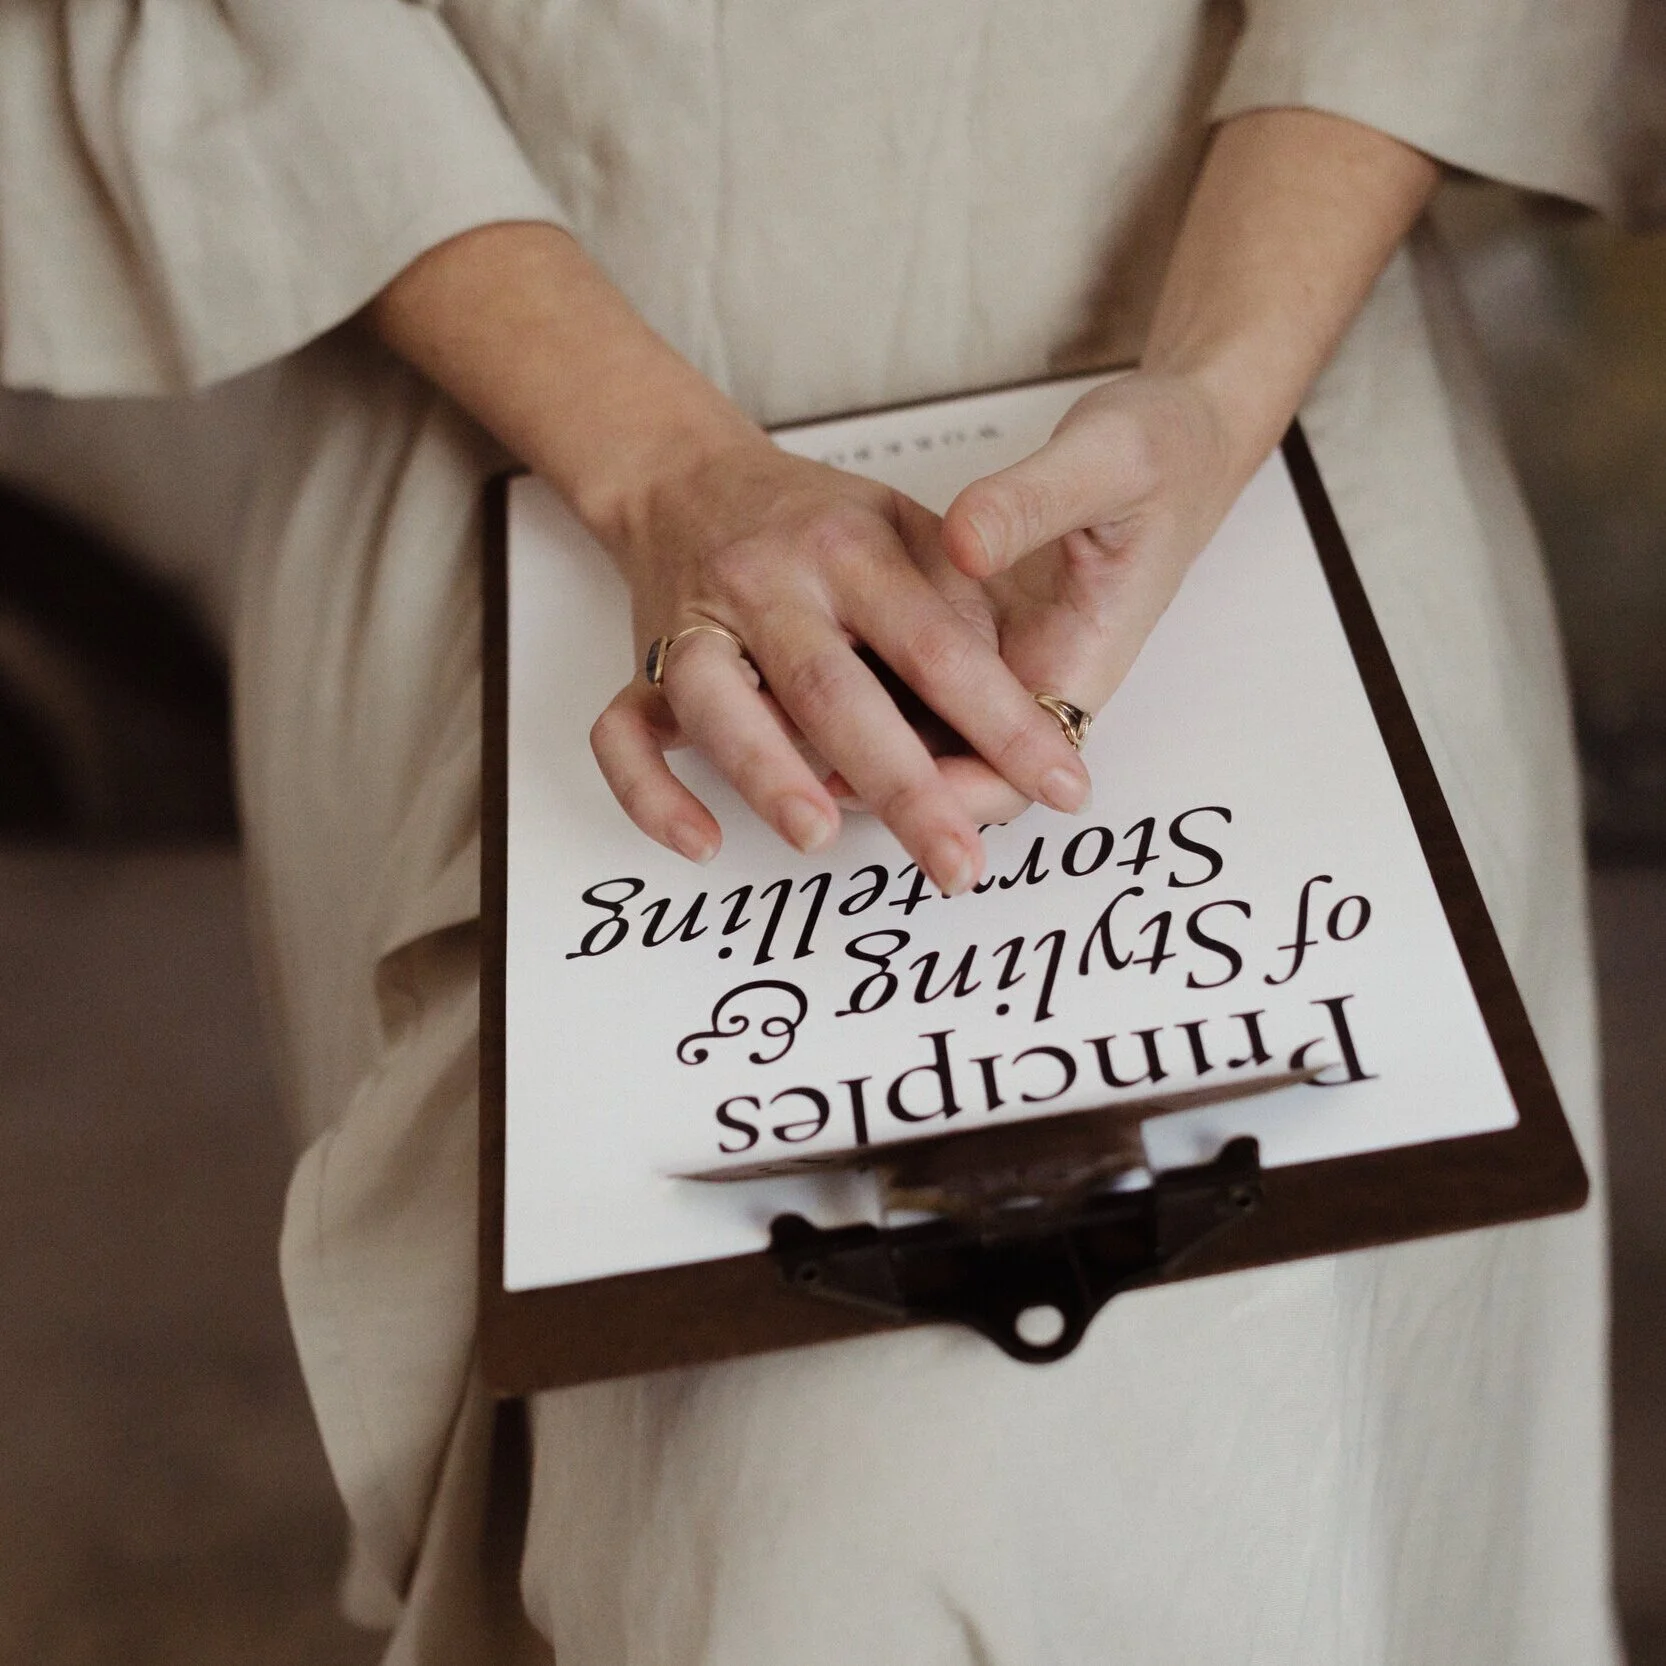 Principles
of Styling &
Storytelling